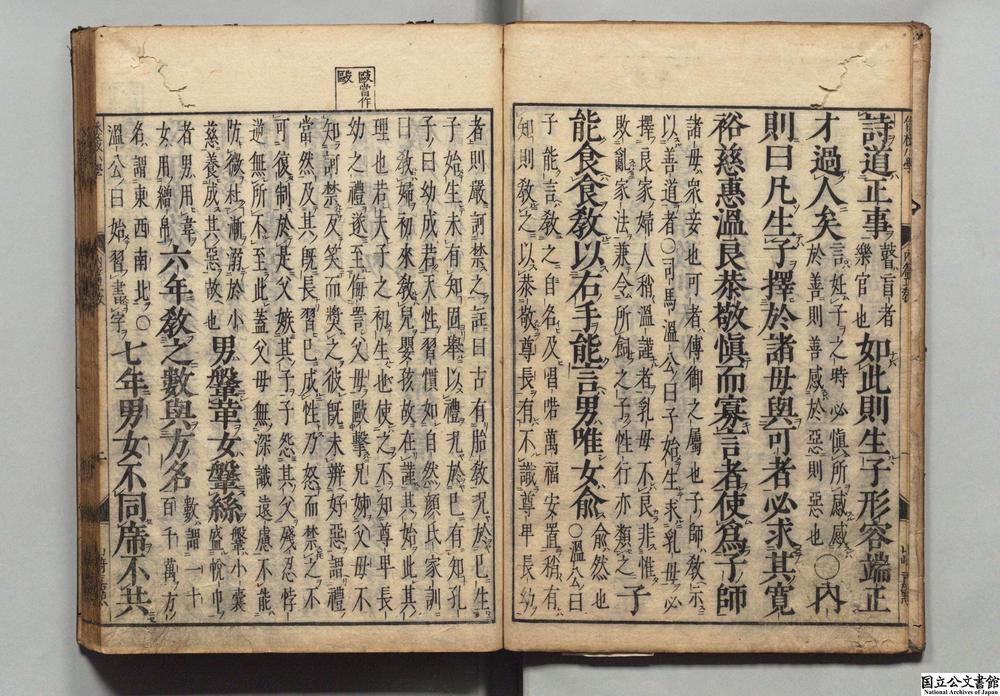 詩道正事瞽樂官盲也者如此則生子形容端正
才過人矣言妊子之時必愼所感感於善則善感於惡則惡也○內
則曰凡生子擇於諸母與可者必求其寬
裕慈惠溫良恭敬愼而寡言者使爲子師
諸母衆妾也可者傅御之屬也子師敎示
以善道者○司馬溫公曰子始生求乳母必
擇良家婦人稍溫謹者乳母不良非惟
敗亂家法兼令所飼之子性行亦類之子
能食食敎以右手能言男唯女兪兪然也○溫公曰
子能言敎之自名及唱喏萬福安置稍有
知則敎之以恭敬尊長有不識尊卑長幼
者則嚴訶禁之○註曰古有胎敎況於已生
子始生未有知固舉以禮況於已有知孔
子曰幼成若天性習慣如自然顏氏家訓
曰敎婦初來敎兒嬰孩故在謹其始此其
理也若夫子之初生也使之不知尊卑長
幼之禮遂至侮詈父母毆擊兄姊父母不
知訶禁反笑而奬之彼旣未辨好惡謂禮
當然及其旣長習已成性乃怒而禁之不
可復制於是父嫉其子子怨其父殘忍悖
逆無所不至此蓋父母無深識遠慮不能
防微杜漸溺於小
慈養成其惡故也男鞶革女鞶絲鞶小囊盛帨巾
者男用韋女用繒帛六年敎之數與方名數謂一十百千萬方
名謂東西南北○
溫公曰始習書字七年男女不同席不共
毆當作
毆
國立公文書館
National Archives of Japan